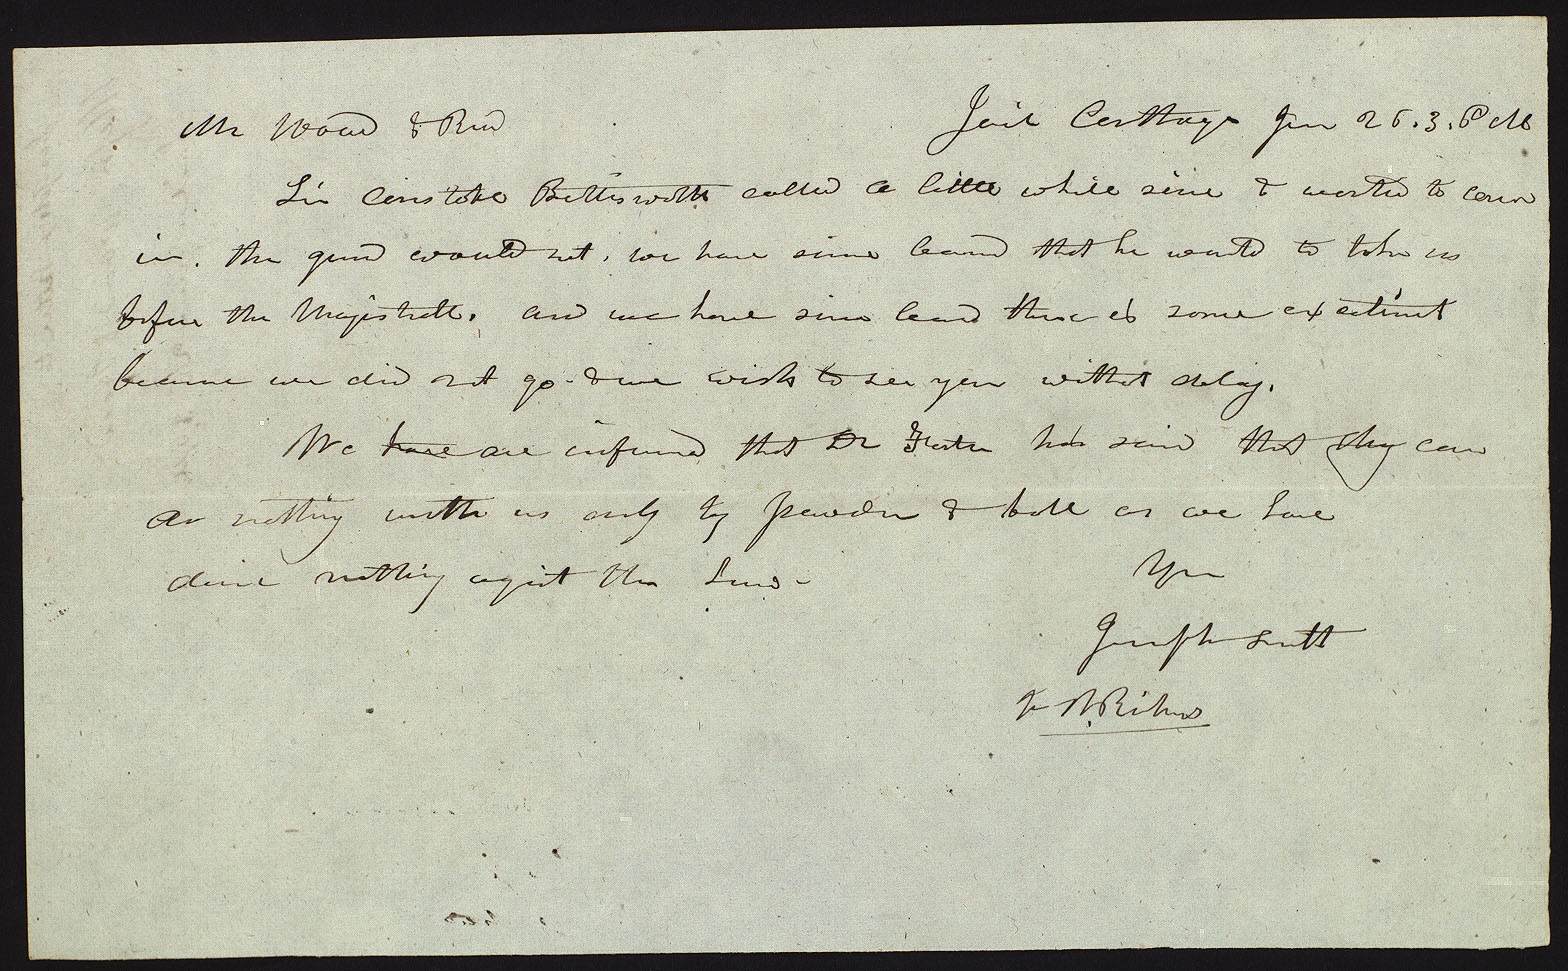 Mr Wood & Reid Jail Carthage Jun 26. 3. P M
Sir Constable Bettisworth called a little while since & wanted to come
in. the guard would not. we have since learnd that he wanted to take us
before the Magistrate. and we have since learnd there is some excitement
because we did not go - & we wish to see you without delay.
We have are informed that Dr Foster has said that they can
do nothing with us only by powder & ball as we have
done nothing against the Law -
Yours
Joseph Smith
W. Richards